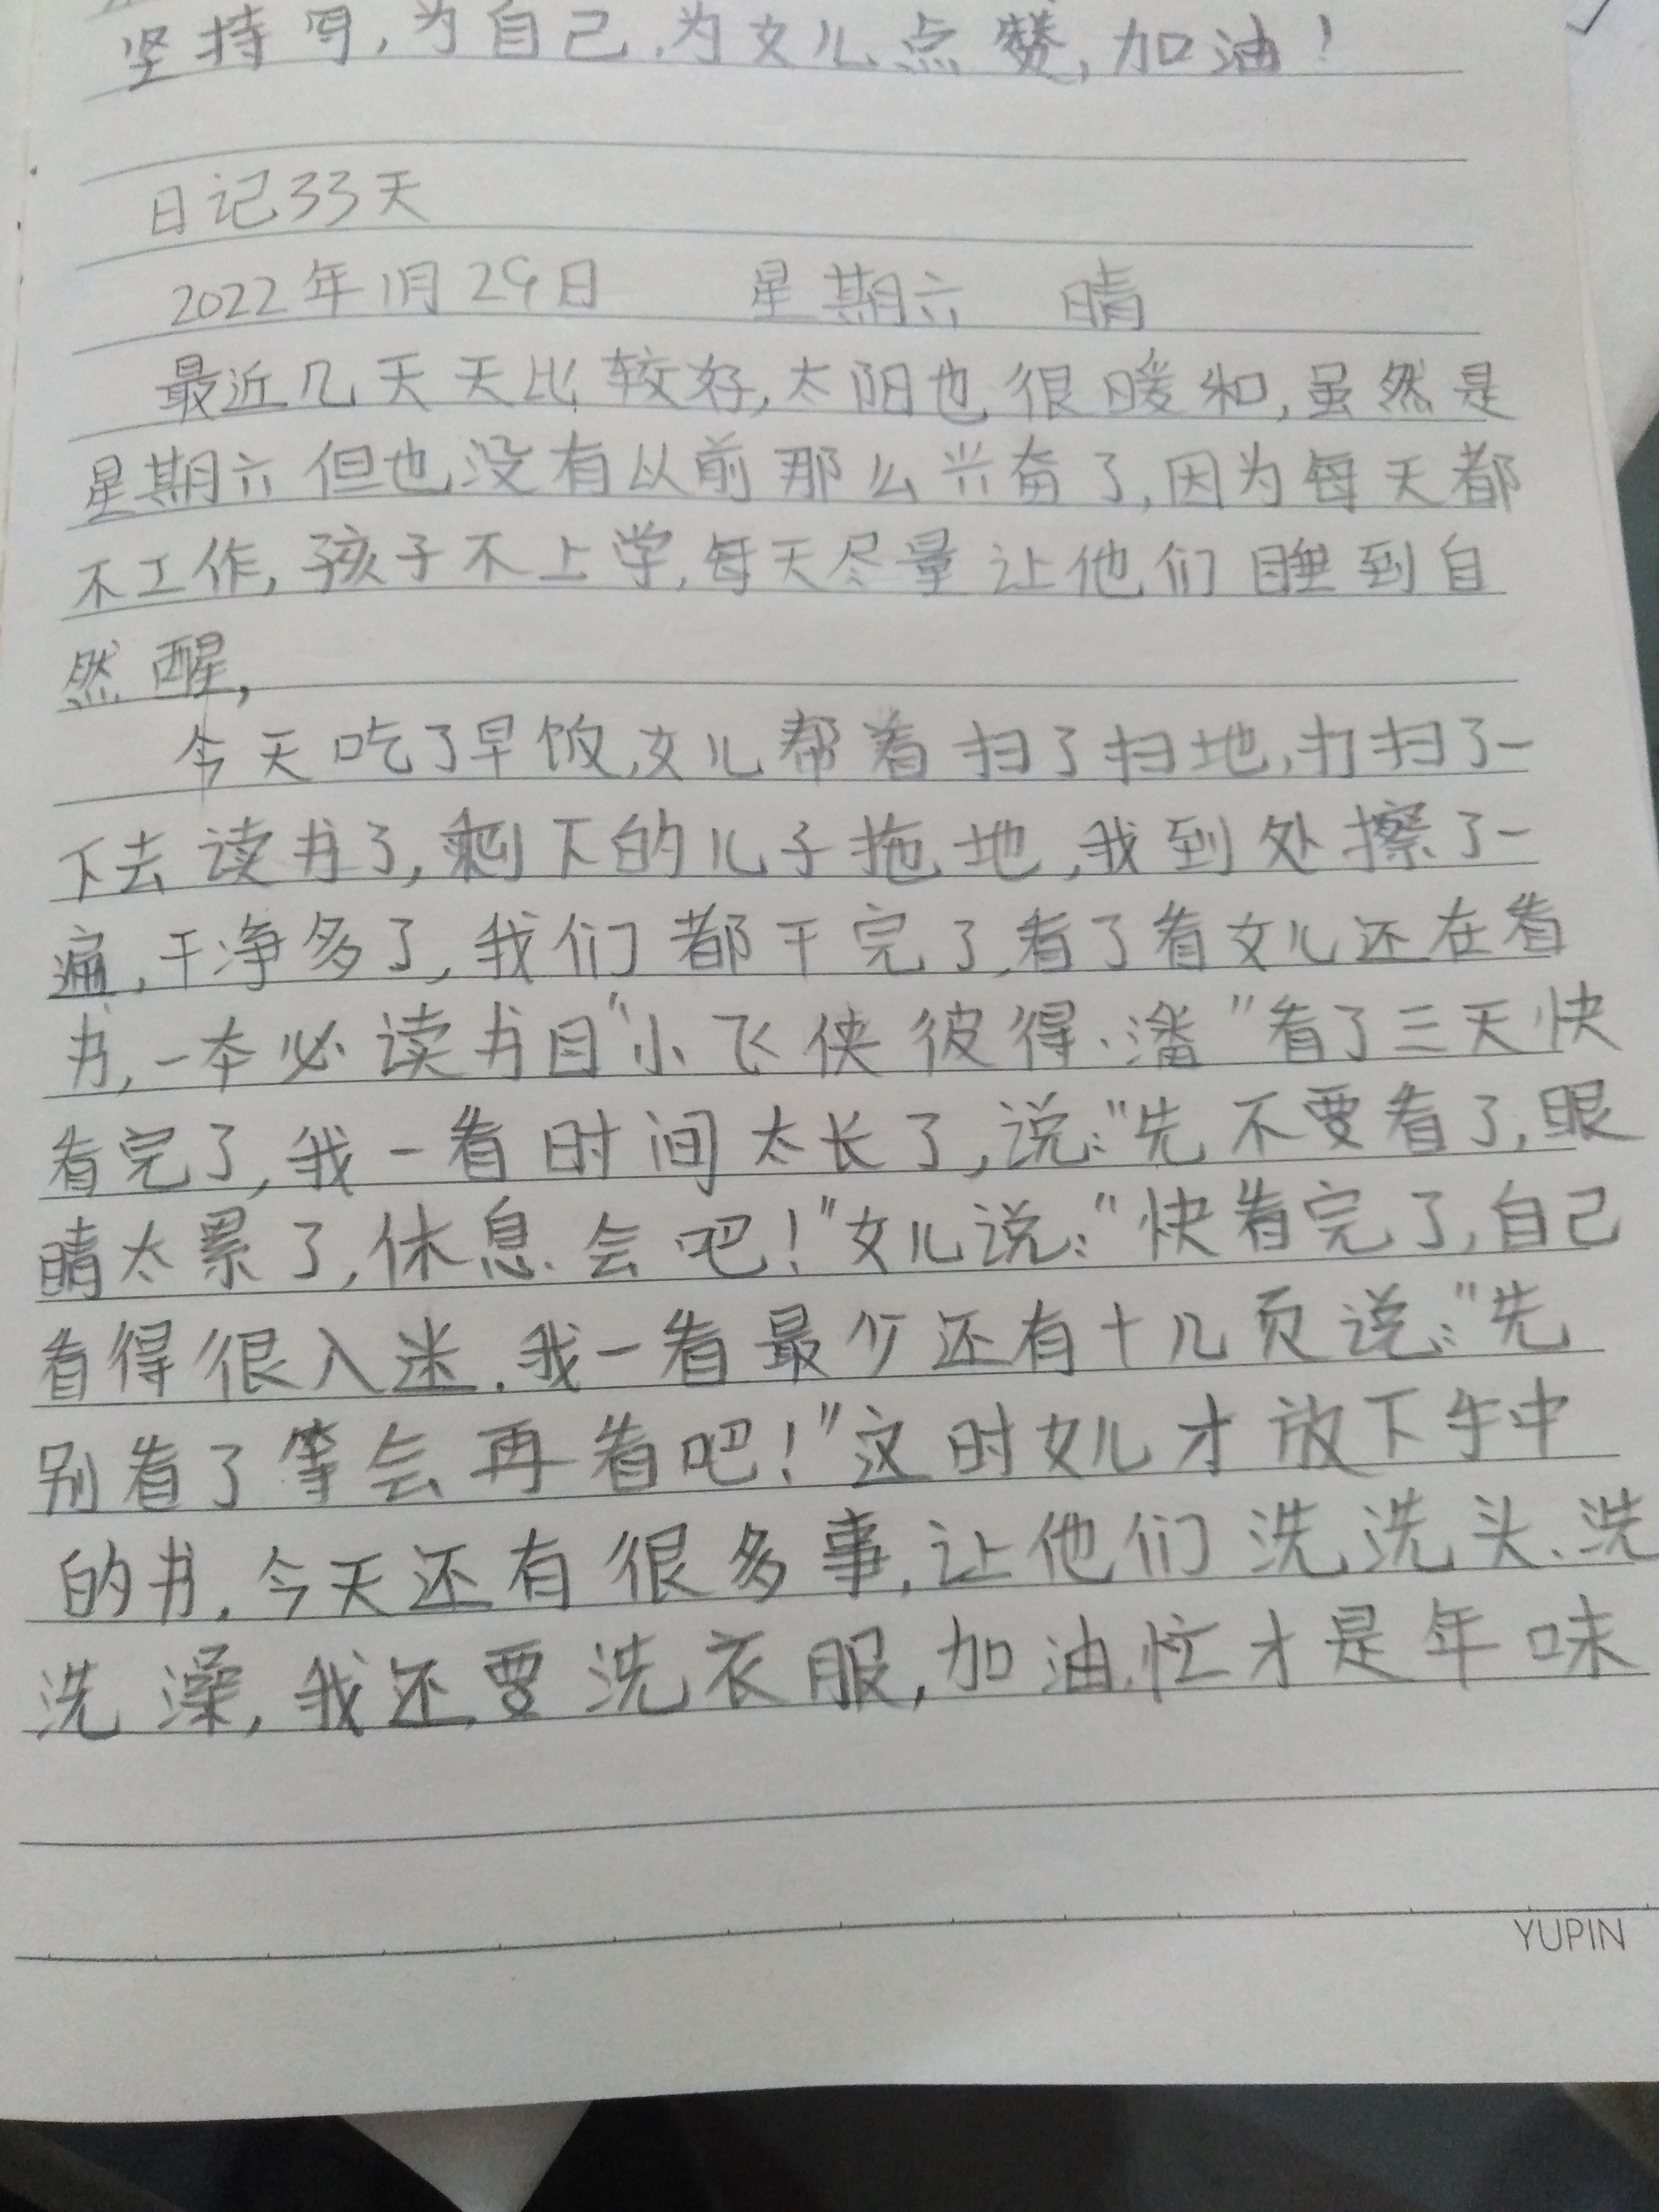 坚持写,为自己,为女儿点赞,加油！
日记33天
2022年1月29日 星期六 晴
最近几天天比较好,太阳也很暖和,虽然是
星期六但也没有以前那么兴奋了,因为每天都
不工作,孩子不上学,每天尽量让他们睡到自
然醒,
今天吃了早饭,女儿帮着扫了扫地,打扫了一
下去读书了,剩下的儿子拖地,我到处擦了一
遍,干净多了,我们都干完了,看了看女儿还在看
书,一本必读书目"小飞侠彼得·潘"看了三天快
看完了,我一看时间太长了,说:"先不要看了,眼
睛太累了,休息会吧！"女儿说:"快看完了,自己
看得很入迷.我一看最少还有十几页说:"先
别看了等会再看吧！"这时女儿才放下手中
的书.今天还有很多事,让他们洗洗头、洗
洗澡,我还要洗衣服,加油,忙才是年味
YUPIN